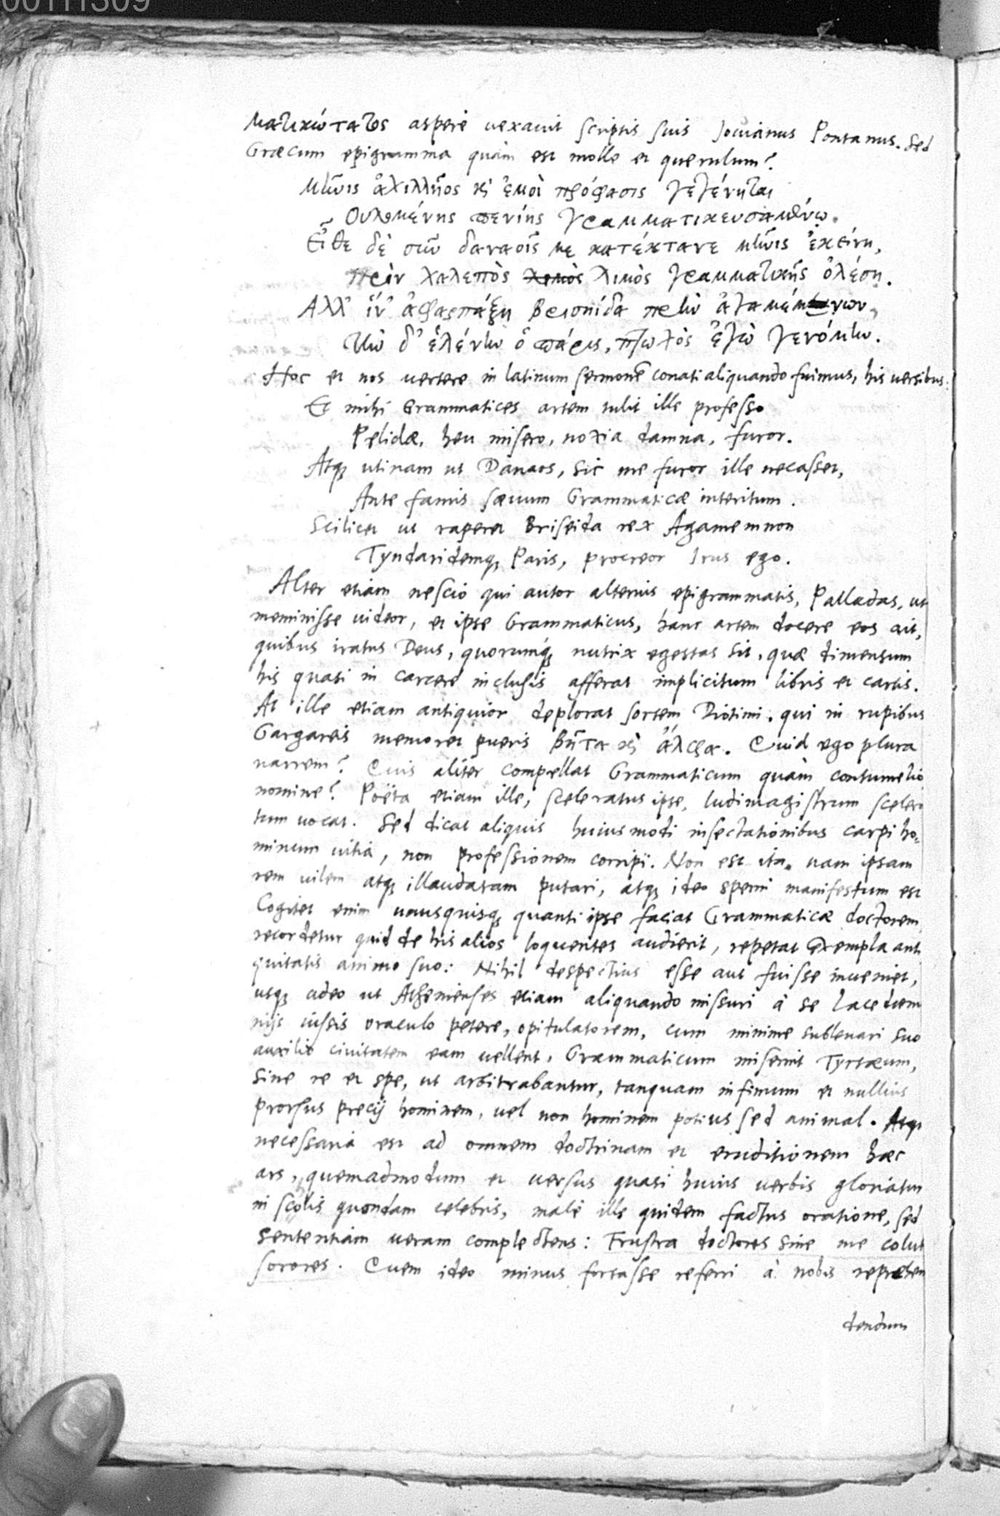 00111309
ματικώτατος asperè uexauit scriptis suis Jouianus Pontanus. Sed
Græcum epigramma quàm est molle et querulum?
Μῆνις ἀχιλλῆος κὶ ἐμοὶ πρόφασις γεγένηται
Οὐλομένης πενίης γραμματικευσαμένῳ.
Εἴθε δὲ σὺν δαναοῖς με κατέκτανε μῆνις ἐκείνη,
Πρὶν χαλεπὸς λιμὸς γραμματικῆς ὀλέσῃ.
Αλλ' ἵν' ἀφαρπάξῃ βρισηίδα πρὶν ἀγαμέμνων,
Τὴν δ' ἑλένην ὁ πάρις, πτωχὸς ἐγὼ γενόμην.
Hoc et nos uertere in latinum sermonē conati aliquando fuimus, his uersibus.
Et mihi Grammatices artem tulit ille professo
Pelidæ, heu misero, noxia damna, furor.
Atq; utinam ut Danaos, sic me furor ille necasset,
Ante famis sæuum Grammaticæ interitum.
Scilicet ut raperet Briseida rex Agamemnon
Tyndaridemq; Paris, procreor Irus ego.
Alter etiam nescio qui autor alterius epigrammatis, Palladas, ut
meminisse uideor, et ipse Grammaticus, hanc artem docere eos ait,
quibus iratus Deus, quorumq; nutrix egestas sit, quæ dimensum
his quasi in carcere inclusis afferat implicitum libris et cartis.
At ille etiam antiquior deplorat sortem Diotimi, qui in rupibus
Gargareis memoret pueris βῆτα κὶ ἄλφα. Quid ego plura
narrem? Quis aliter compellat Grammaticum quàm contumelio
nomine? Poëta etiam ille, sceleratus ipse, ludimagistrum scelera
tum uocat. Sed dicat aliquis huiusmodi insectationibus carpi ho-
minum uitia, non professionem corripi. Non est ita, nam ipsam
rem uilem atq; illaudatam putari, atq; ideo sperni manifestum est
Cogitet enim unusquisq; quanti ipse faciat Grammaticæ doctorem,
recordetur quid de his alios loquentes audierit, repetat exempla anti
quitatis animo suo: Nihil despectius esse aut fuisse inueniet,
usq; adeo ut Athenienses etiam aliquando missuri à se Lacedæm
nijs iussis oraculo petere, opitulatorem, cum minime subleuari suo
auxilio ciuitatem eam uellent, Grammaticum miserint Tyrtæum,
sine re et spe, ut arbitrabantur, tanquam infimum et nullius
prorsus precij hominem, uel non hominem potius sed animal. Atqui
necessaria est ad omnem doctrinam et eruditionem hæc
ars, quemadmodum et uersus quasi huius uerbis gloriatur
in scolis quondam celebris, malè ille quidem factus oratione, sed
sententiam ueram complectens: Frustra doctores sine me colue
sorores. Quem ideo minus fortasse referri à nobis reprehen
dendum